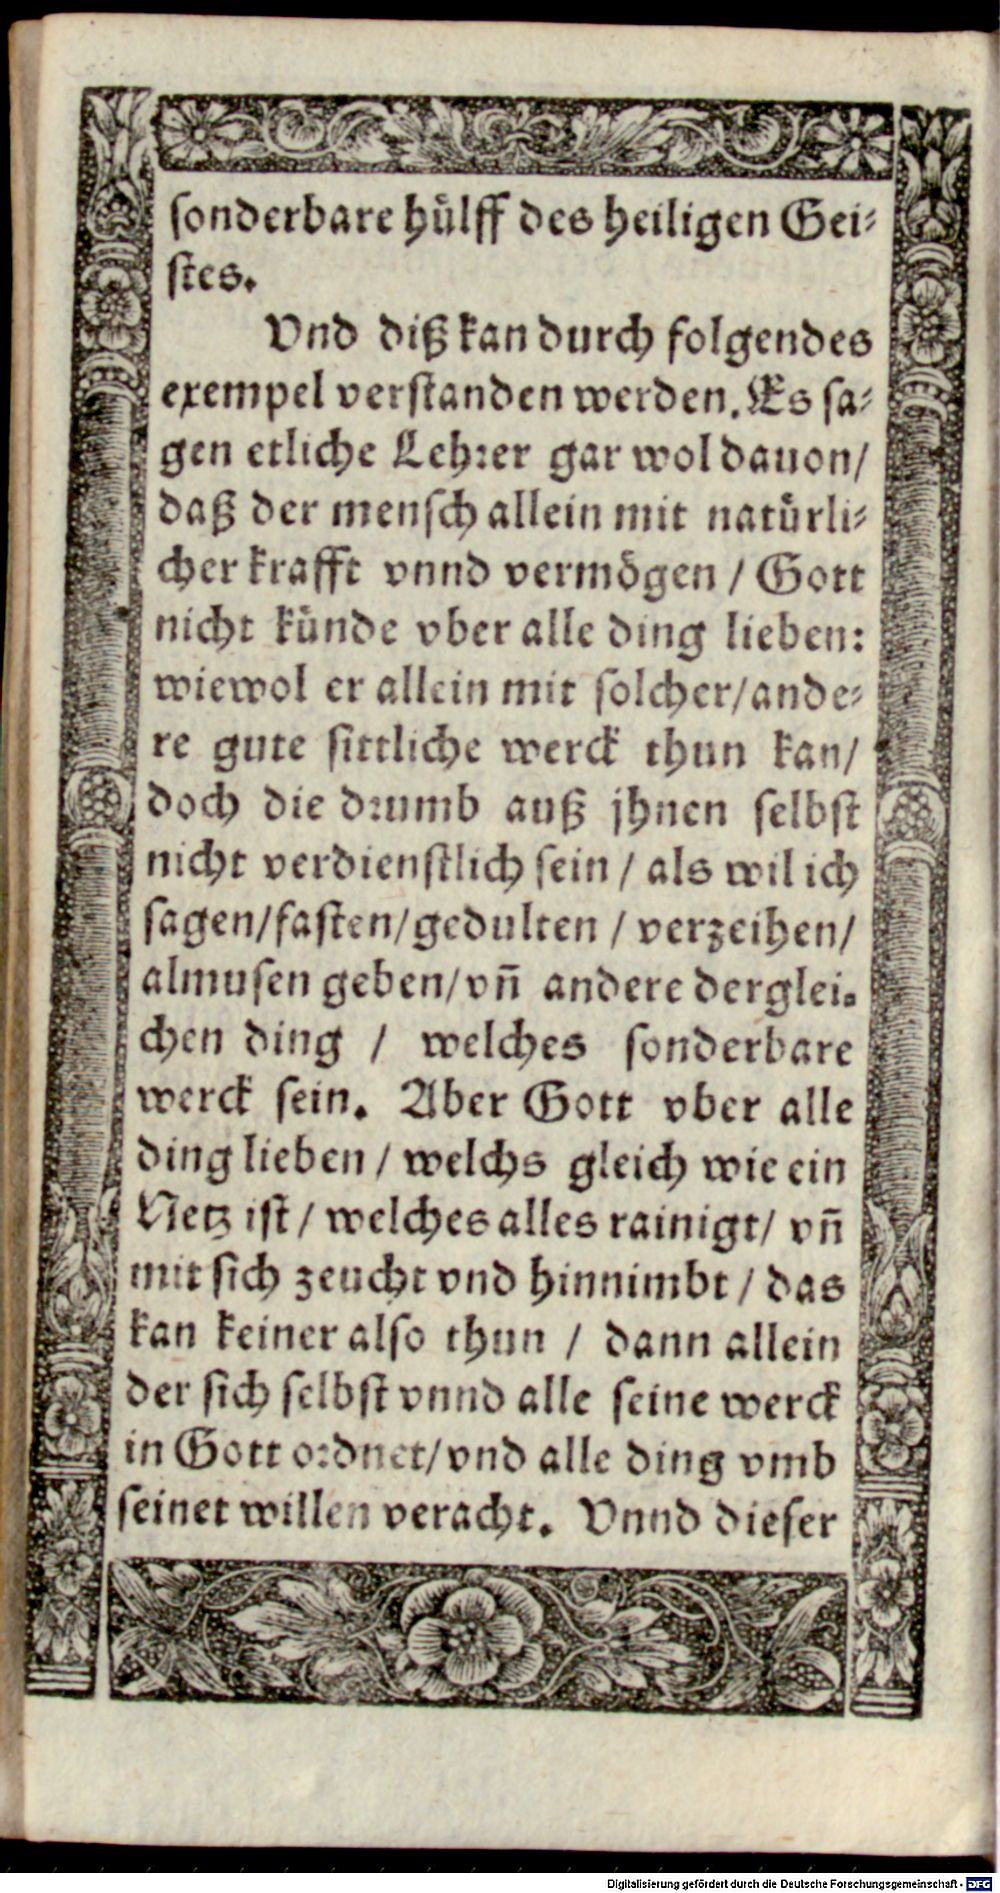 ſonderbare huͤlff des heiligen Gei⸗
ſtes.
Vnd diß kan durch folgendes
exempel verſtanden werden. Es ſa⸗
gen etliche Lehꝛer gar wol dauon/
daß der menſch allein mit natuͤrli⸗
cher krafft vnnd vermoͤgen / Gott
nicht kuͤnde vber alle ding lieben:
wiewol er allein mit ſolcher/ande⸗
re gute ſittliche werck thun kan/
doch die dꝛumb auß jhnen ſelbſt
nicht verdienſtlich ſein / als wil ich
ſagen/faſten/gedulten / verzeihen/
almuſen geben/vñ andere derglei⸗
chen ding / welches ſonderbare
werck ſein. Aber Gott vber alle
ding lieben / welchs gleich wie ein
Netz iſt / welches alles rainigt/ vñ
mit ſich zeucht vnd hinnimbt / das
kan keiner alſo thun / dann allein
der ſich ſelbſt vnnd alle ſeine werck
in Gott oꝛdnet/vnd alle ding vmb
ſeinet willen veracht. Vnnd dieſer
Digitalisierung gefördert durch die Deutsche Forschungsgemeinschaft - DFG